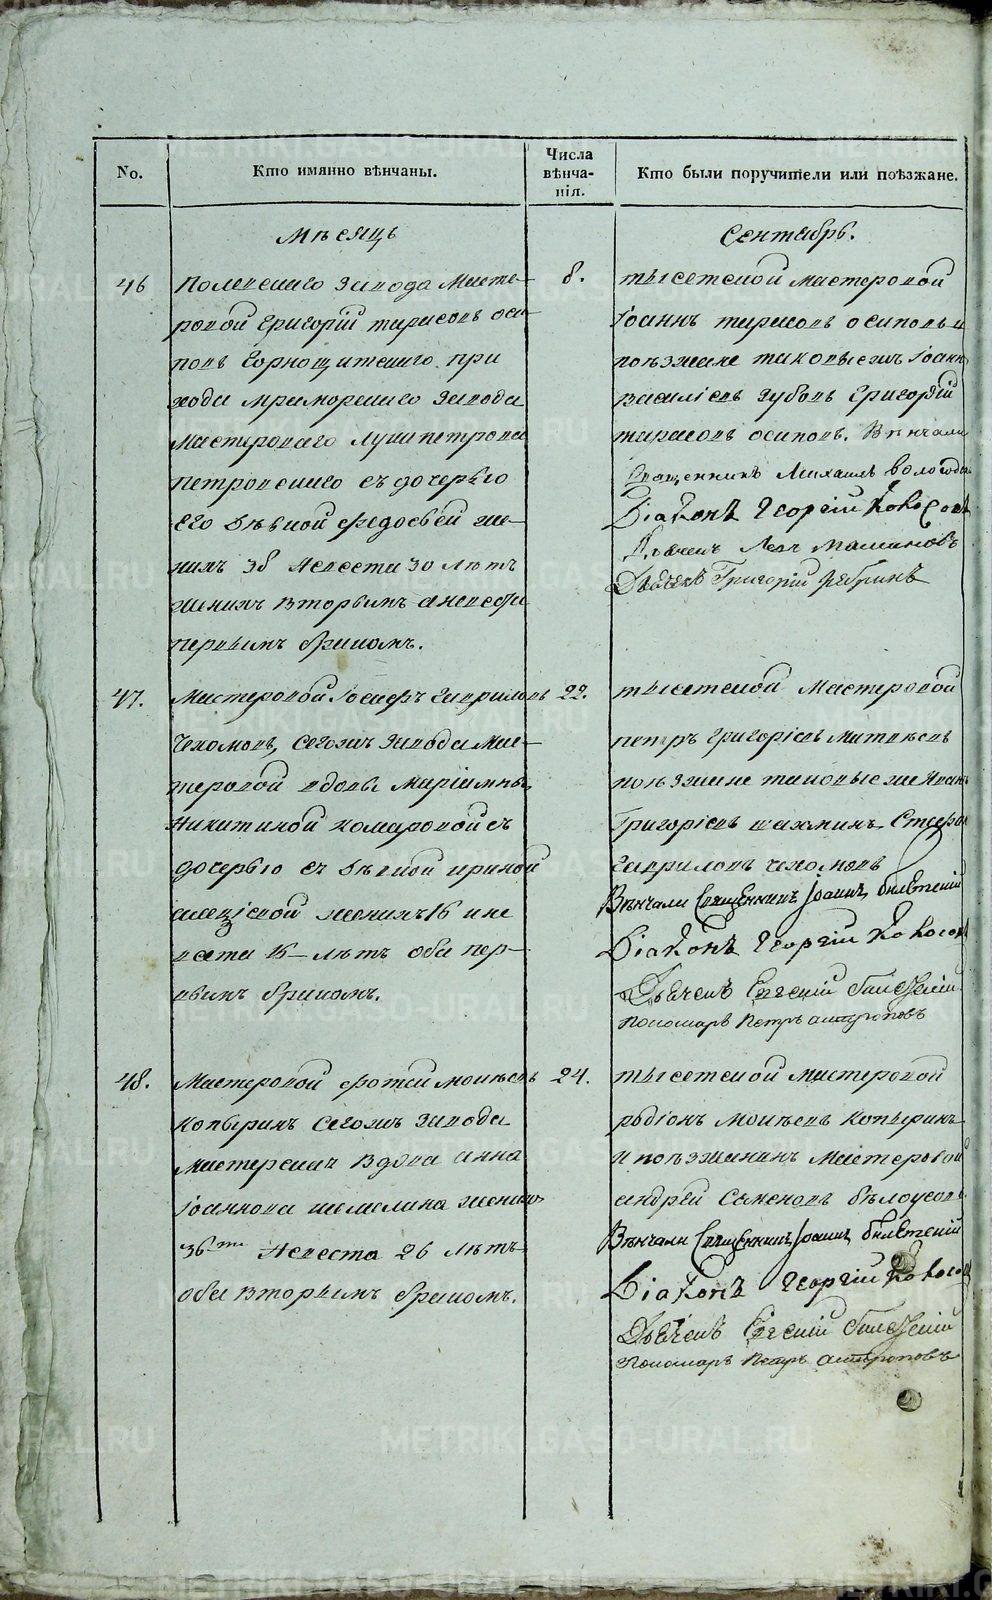 No.
Кто имянно вѣнчаны.
Числа
вѣнча-
нія.
Кто были поручители или поѣзжане.
Мѣсяцъ
Сентябрь.
46
Полевскаго завода Масте-
ровой Григорій тарасовъ оси-
повъ Горнощитскаго при
хода мраморскаго завода
мастероваго Луки петрова
петровскаго съ дочерью
его дѣвкой федосьей же-
нихъ 38 Невеста 30 лѣтъ
женихъ вторымъ а невеста
первымъ бракомъ.
8.
тысетской мастеровой
Іоаннъ тарасовъ осиповъ и
поѣзжане таковыежъ Іоаннъ
василіевъ зубовъ Григорій
тарасовъ осиповъ. Вѣнчали
Священникъ Михаилъ
Діаконъ Георгій Кокосовъ
Дьячекъ Левъ
Дьячекъ Григорій
47.
Мастеровой Іосифъ гавриловъ
Чехомовъ, сегожъ завода мас-
теровой вдовы Маріамны
Никитиной комаровой съ
дочерью съ дѣвкой ириной
женихъ 16 и не
веста 16 лѣтъ оба пер-
вымъ бракомъ.
22.
тысетской Мастеровой
петръ григоріевъ
поѣзжане таковые же Иванъ
Григоріевъ
гавриловъ чехомовъ
Вѣнчали Священникъ Іоаннъ
Діаконъ Георгій Кокосовъ
Дьячекъ Евгеній
Пономарь Петръ
48.
Мастеровой фотей моисѣевъ
Копыринъ сегожъ завода
мастерская вдова анна
Іоаннова шемелина женихъ
36ти Невеста 26 лѣтъ
оба вторымъ бракомъ.
24.
тысетской мастеровой
родіонъ моисѣевъ Копыринъ
и поѣзжанинъ мастеровой
андрей Семеновъ бѣлоусовъ
Вѣнчали Священникъ Іоаннъ
Діаконъ Георгій Кокосовъ
Дьячекъ Евгеній
Пономарь Петръ
METRIKI.GASO-URAL.RU